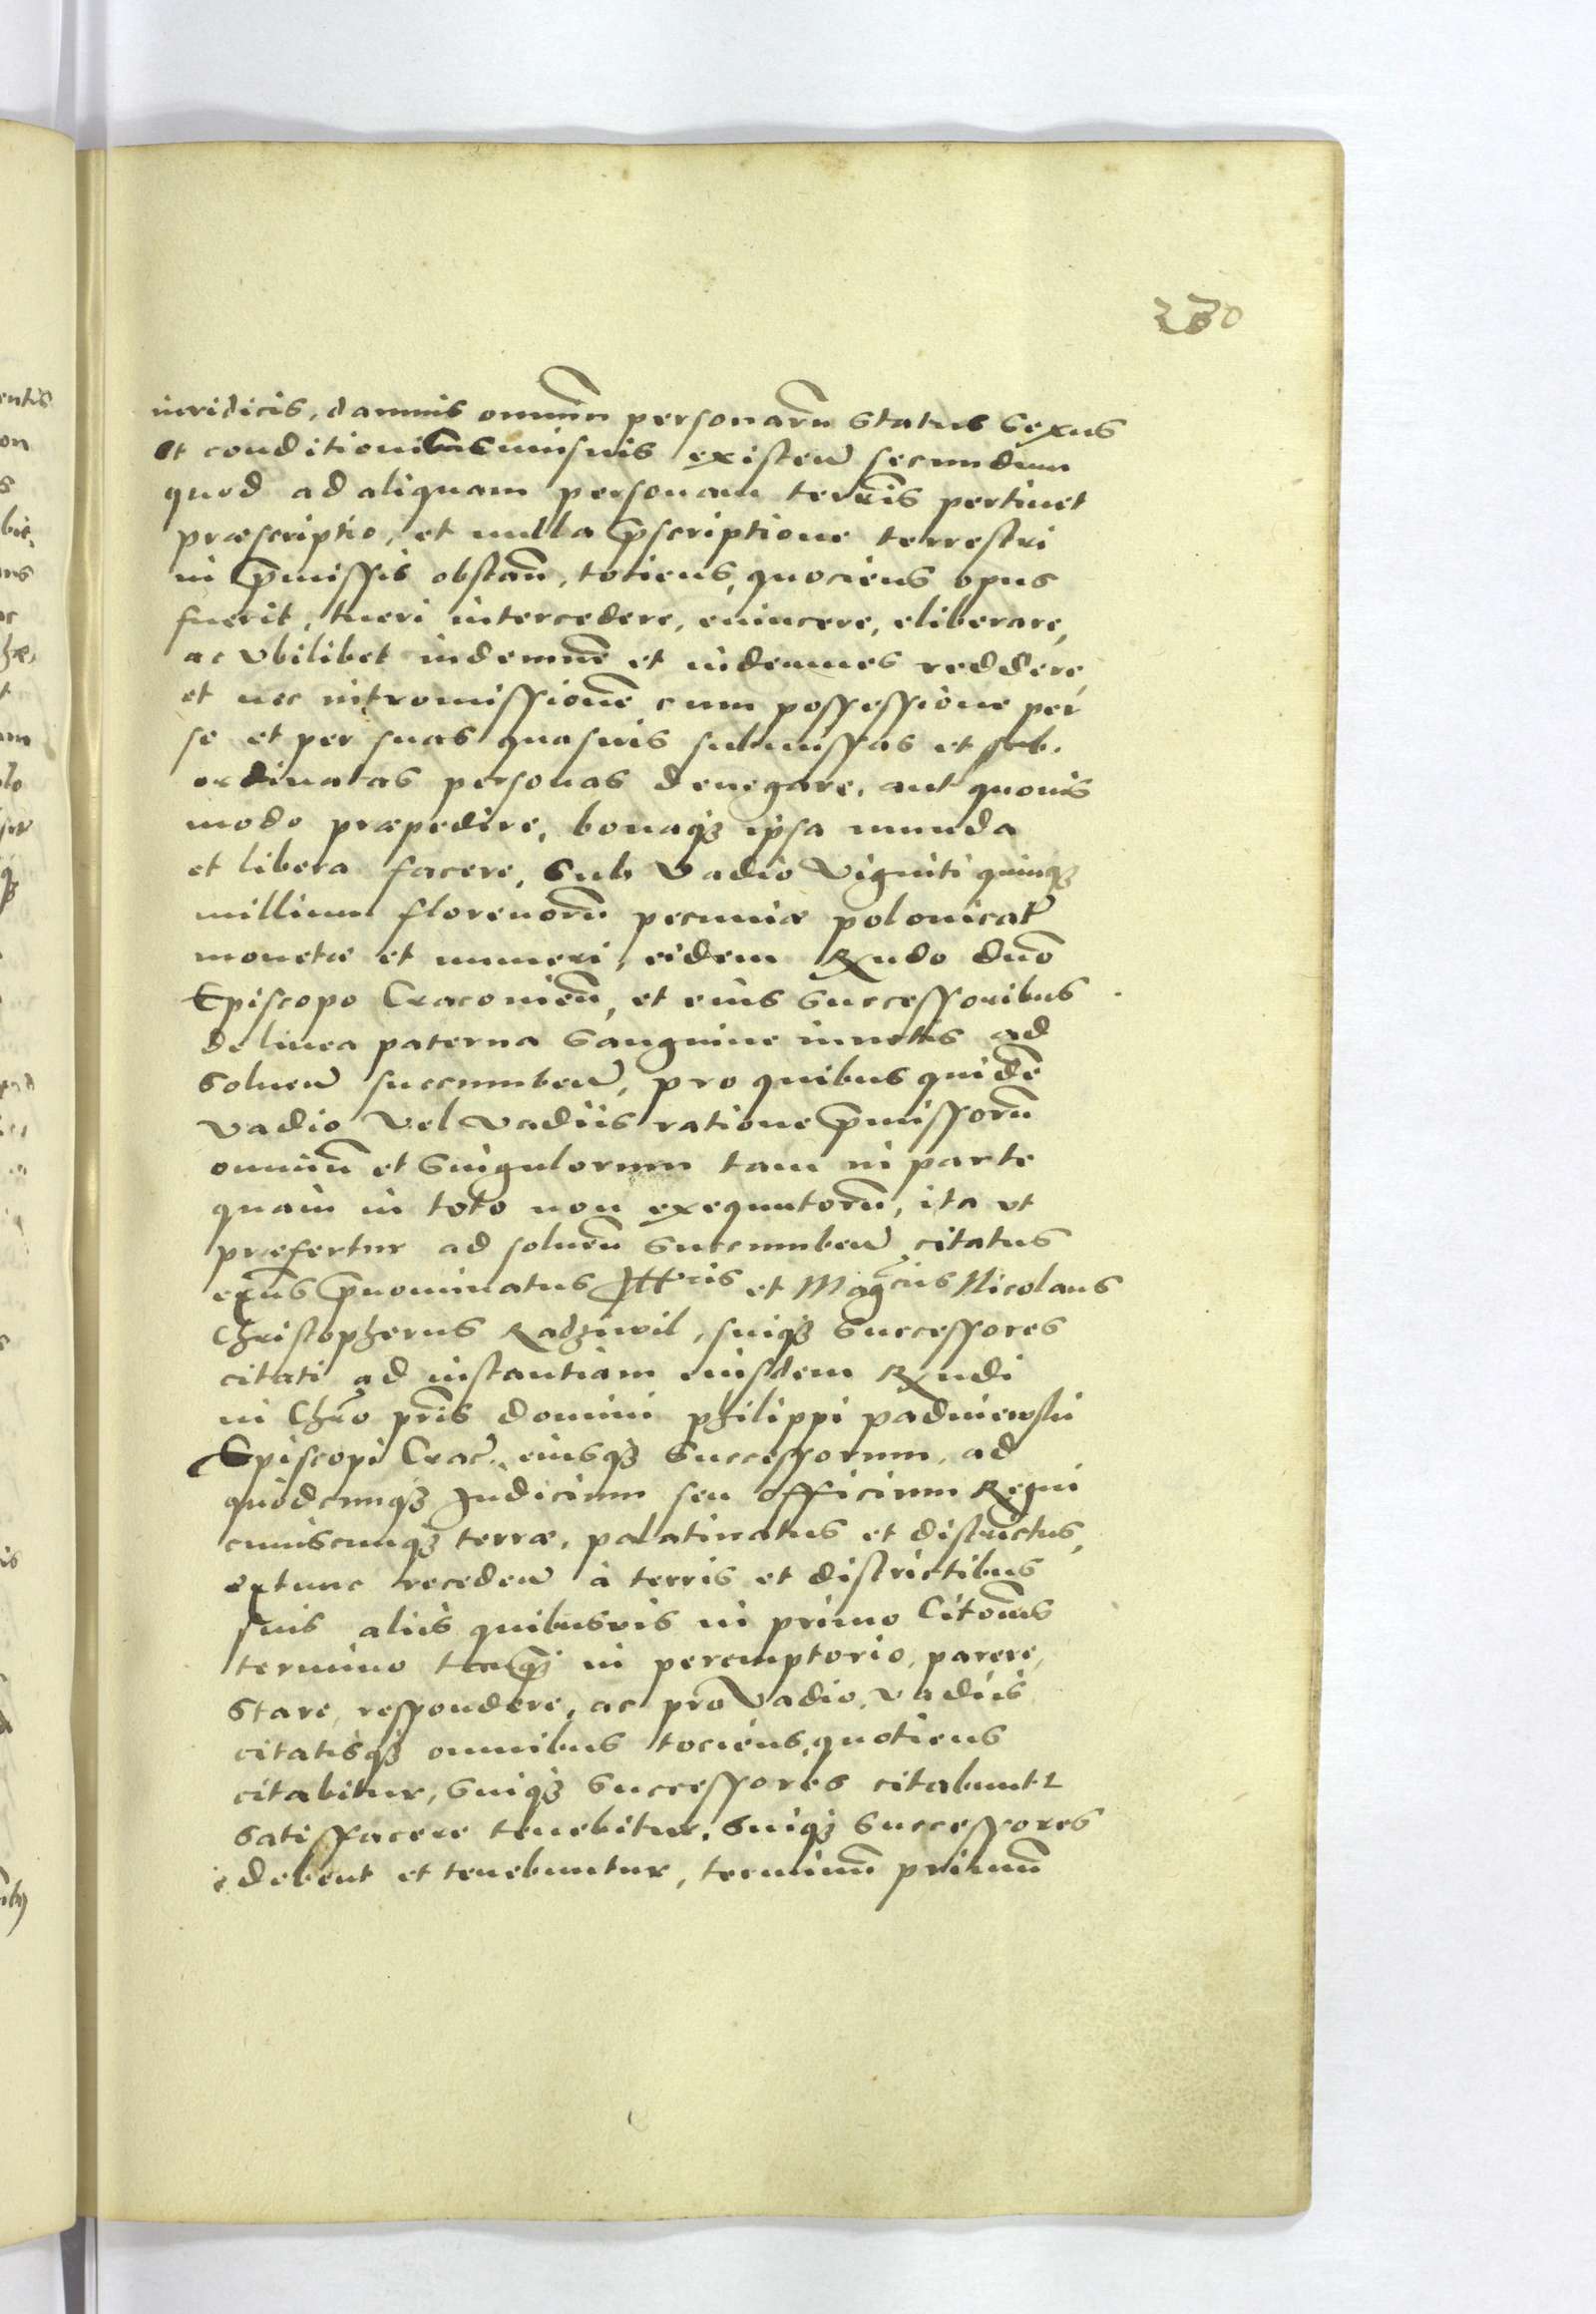 230
iuridicis, damnis omniũ personarũ status sexus
et conditionis cuiusuis existeñ secundum
quod ad aliquam personam terrẽis pertinet
præscriptio, et nulla p̃scriptione terrestri
in p̃missis obstañ, totiens, quociens opus
fuerit, tueri intercedere, euincere, eliberare,
ac vbilibet indemnẽ et indemnes reddere,
et nec intromissionẽ cum possessione per
se et per suas quasuis submissas et sub.
ordinatas personas denegare, aut quouis
modo præpedire, bonaq3 ipsa munda
et libera facere, sub vadio viginti quinq3
millium florenorũ pecuniæ polonicat̃
monetæ et numeri, eidem Rndo dño
Episcopo Cracouieñ, et eius successoribus
de linea paterna sanguine iunctis ad
solueñ succumbeñ, pro quibus quidẽ
vadio vel vadiis ratione p̃missorũ
omniũ et singulorum tam in parte
quam in toto non exequutorũ, ita vt
præfertur ad solueñ succumbeñ citatus
extũs p̃nominatus Illris et Mag̃cus Nicolaus
Christopherus Radziwil, suiq3 successores
citati ad instantiam eiusdem Rndi
in Chr̃o pr̃is domini philippi padniewski
Episcopi Crac̃. eiusq3 successorum, ad
quodcunq3 Judicium seu officium Regni
cuiuscunq3 terræ, palatinatus et districtus,
extunc recedeñ à terris et districtibus
suis aliis quibusuis in primo Citõnis
termino tanq̃ in peremptorio, parere,
stare, respondere, ac pro vadio, vadiis
citatisq3 omnibus tociens, quotiens
citabitur, suiq3 successores citabunt̃
satisfacere tenebitur, suiq3 successores
debent et tenebuntur, terminũ primũ